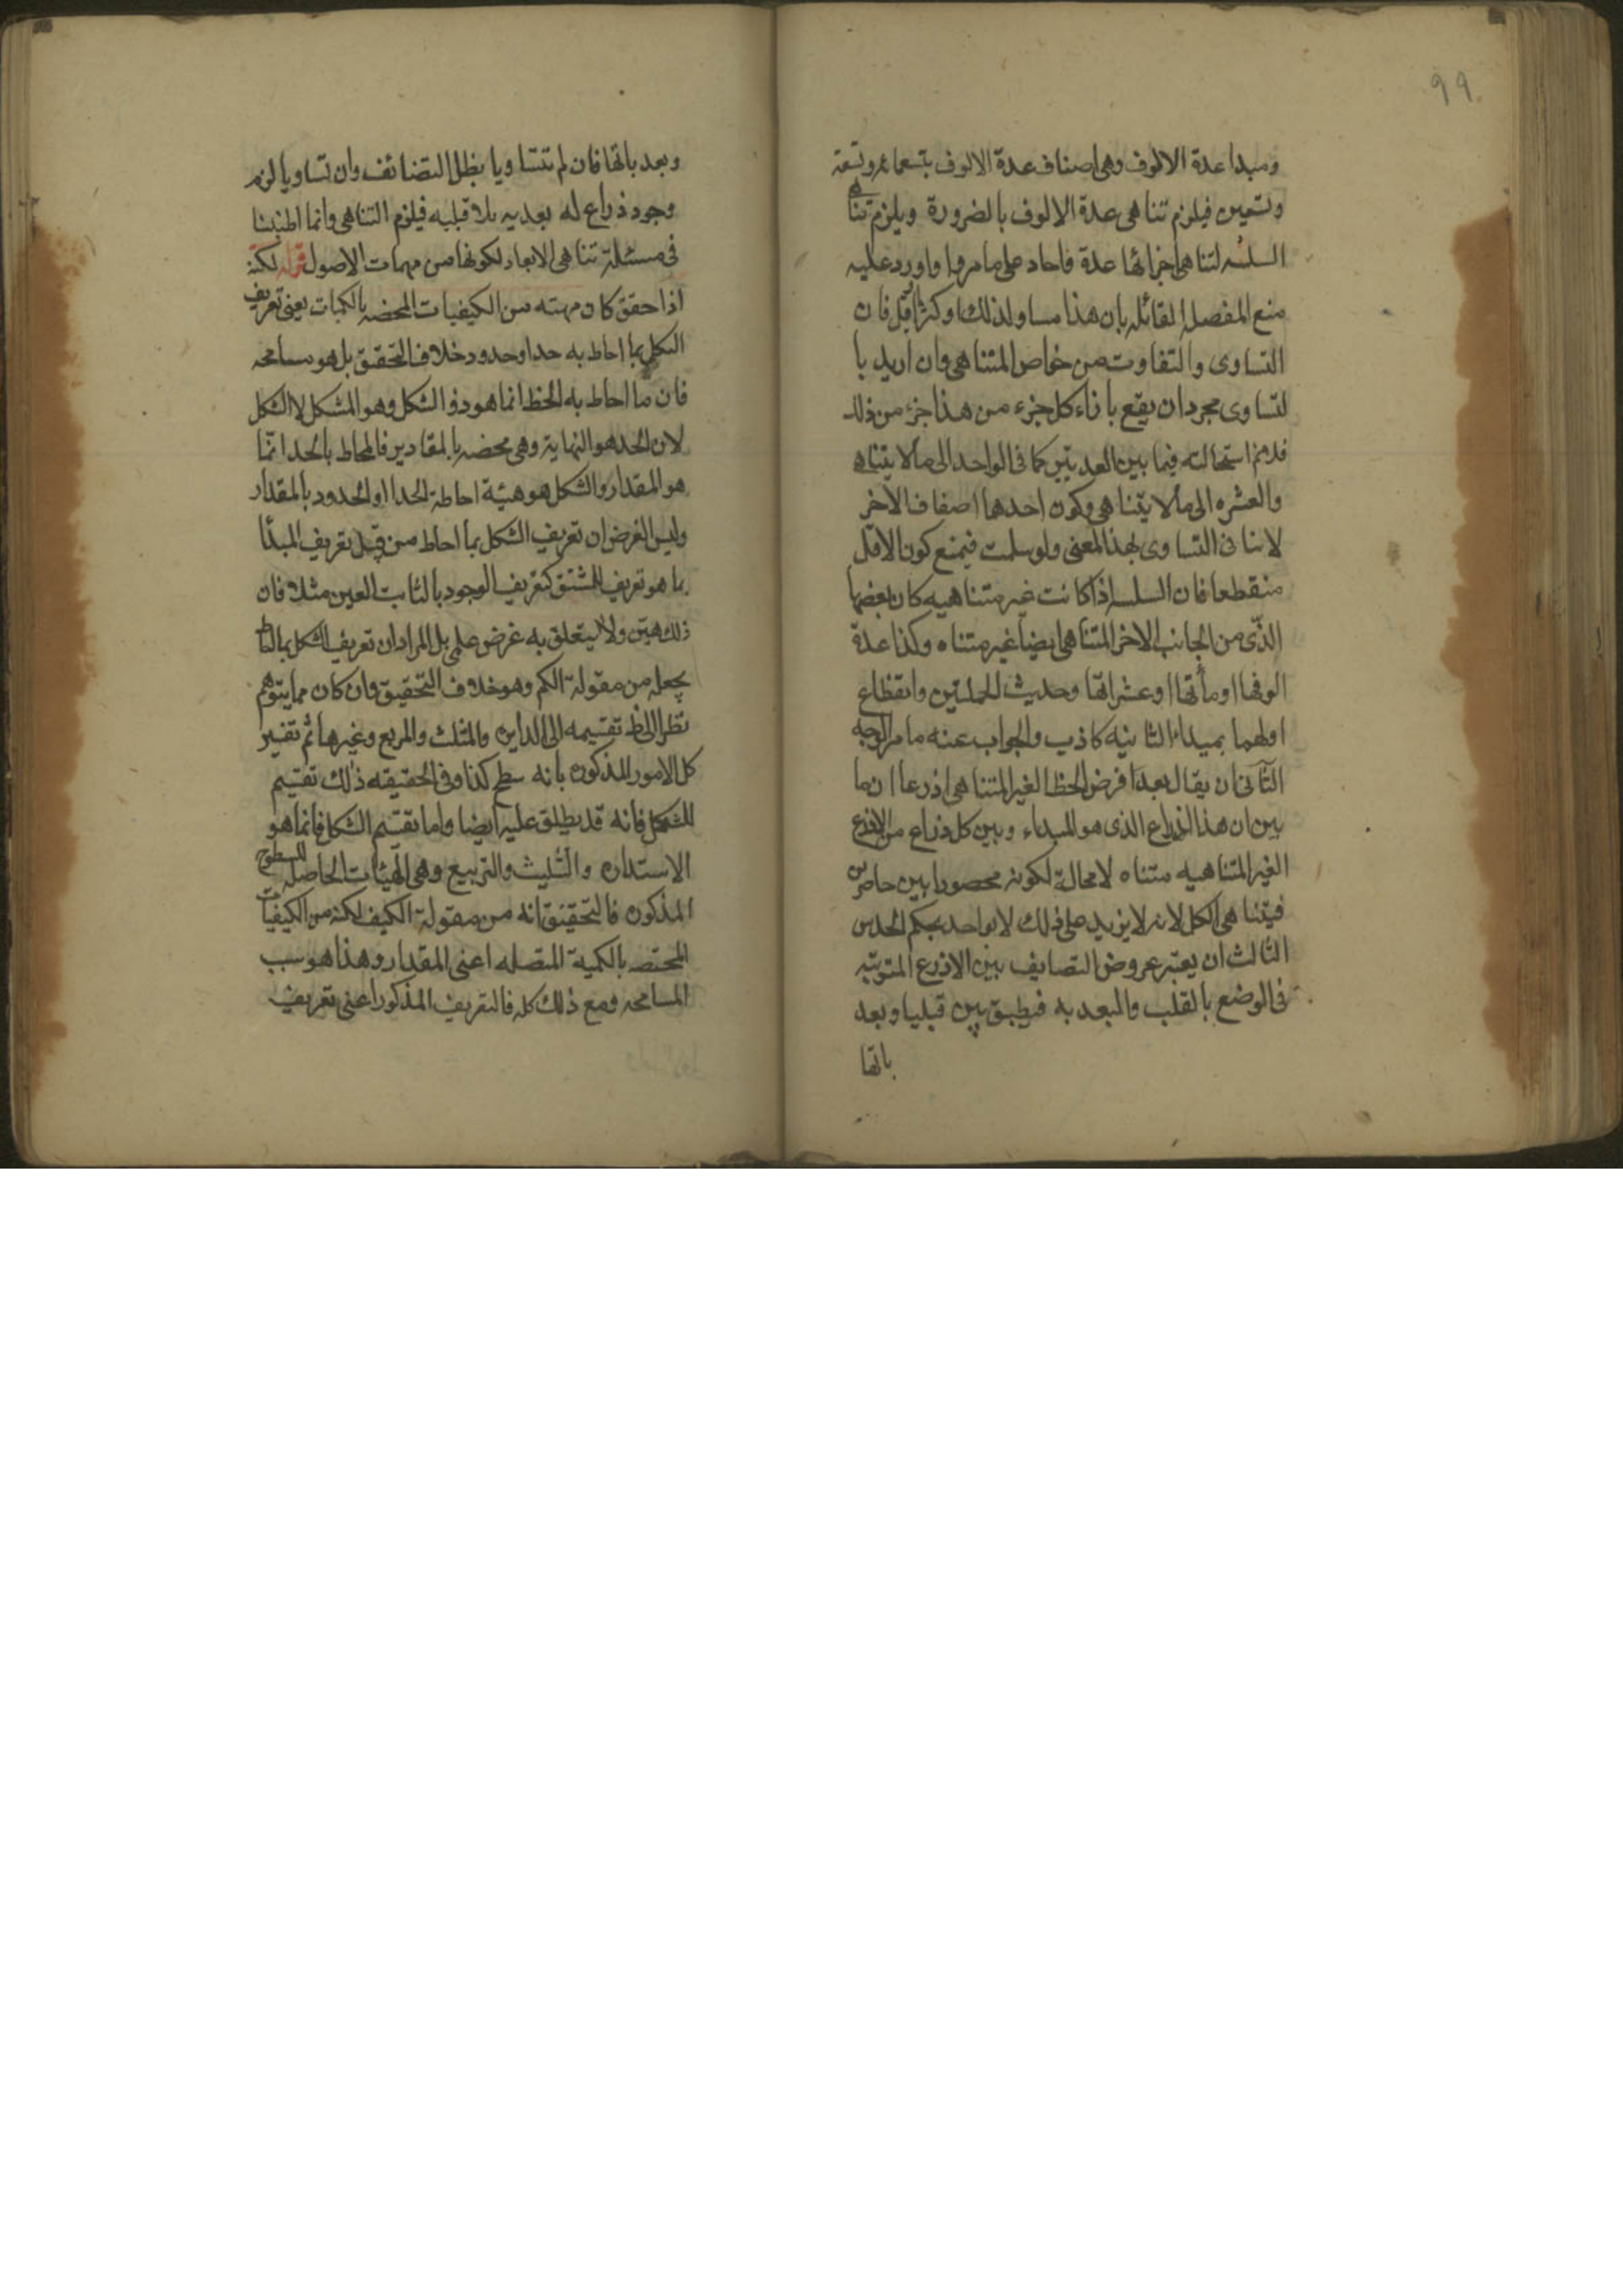 ٩٩
ومبدا عدة الالوف وهى اصناف عدة الالوف بتسعمائه وتسعة
وتسعين فيلزم تناهى عدة الالوف بالضرورة ويلزم تناهى
السلسه لتناهى اجزائها عدة فاحاد على ما مر واورد عليه
منع المفصله القائله بان هذا مساو لذلك او كثر او اقل فان
التساوى والتفاوت من خواص المتناهى وان اريد با
لتساوى مجرد ان يقع بازاء كل جزء من هذا جزء من ذلك
فلانم استحالته فيما بين العديتين كما فى الواحد الى ما لا يتناهى
والعشره الى ما لا يتناهى وكون احدهما اصفاف الاخر
لا ينافى التساوى بهذا المعنى ولو سلمت فيمنع كون الاقل
منقطعا فان السلسه اذا كانت غير متناهيه كان بعضها
الذى من الجانب الاخر المتناهى ايضا غير متناه وكذا عدة
الوفها او مأتها او عشراتها وحديث الجملتين وانقطاع
اولهما بمبداء الثانيه كاذب والجواب عنه ما مر الوجه
الثانى ان يقال بعد فرض الخط الغير المتناهى اذرعا ان ما
بين ان هذا الذراع الذى هو المبداء وبين كل ذراع من الاذرع
الغير المتناهيه متناه لا محالة لكونه محصورا بين حاصرين
فيتناهى الكل لانه لا يزيد على ذلك لا بواحد بحكم الحدس
الثالث ان يعتبر عروض التصايف بين الاذرع المترتبه
فى الوضع بالقلب والبعديه فيطبق بين قبليا وبعد
باتها
وبعد باتها فان لم يتساويا بطل التضائف وان تساويا لزم
وجود ذراع له بعديه بلا قبليه فيلزم التناهى وانما اطنبنا
فى مسئلة تناهى الابعاد لكونها من مهمات الاصول قوله لكنه
اذا حقق كان مهته من الكيفيات المحضه بالكميات يعنى تعريف
الشكل بما احاط به حد او حدود خلاف التحقيق بل هو مسامحه
فان ما احاط به الخط انما هو ذو الشكل وهو المشكل لا الشكل
لان الحد هو النهاية وهى محضه بالمقادير فالمحاط بالحد انما
هو المقدار والشكل هو هيئة احاطة الحد او الحدود بالمقدار
وليس الغرض ان تعريف الشكل بما احاط من قبيل تعريف المبدأ
بما هو تعريف المشتق كتعريف الوجود بالثابت العين مثلا فان
ذلك هين ولا يتعلق به غرض علمى بل المراد ان تعريف الشكل بما
يجعله من مقولة الكم وهو خلاف التحقيق وان كان مما يتوهم
نظرا الى تقسيمه الى الدايره والمثلث والمربع وغيرها ثم تفسير
كل الامور المذكوره بانه سطح كذا وفى الحقيقه ذلك تقسيم
للشكل فانه قد يطلق عليه ايضا واما تقسيم الشكل فانما هو
الاستداره والتثليث والتربيع وهى الهيئات الحاصله للسطوح
المذكوره فالتحقيق انه من مقولة الكيف لكنه من الكيفيات
المختصه بالكمية المتصله اعنى المقدار وهذا هو سبب
المسامحه ومع ذلك كله فالتعريف المذكور اعنى تعريف